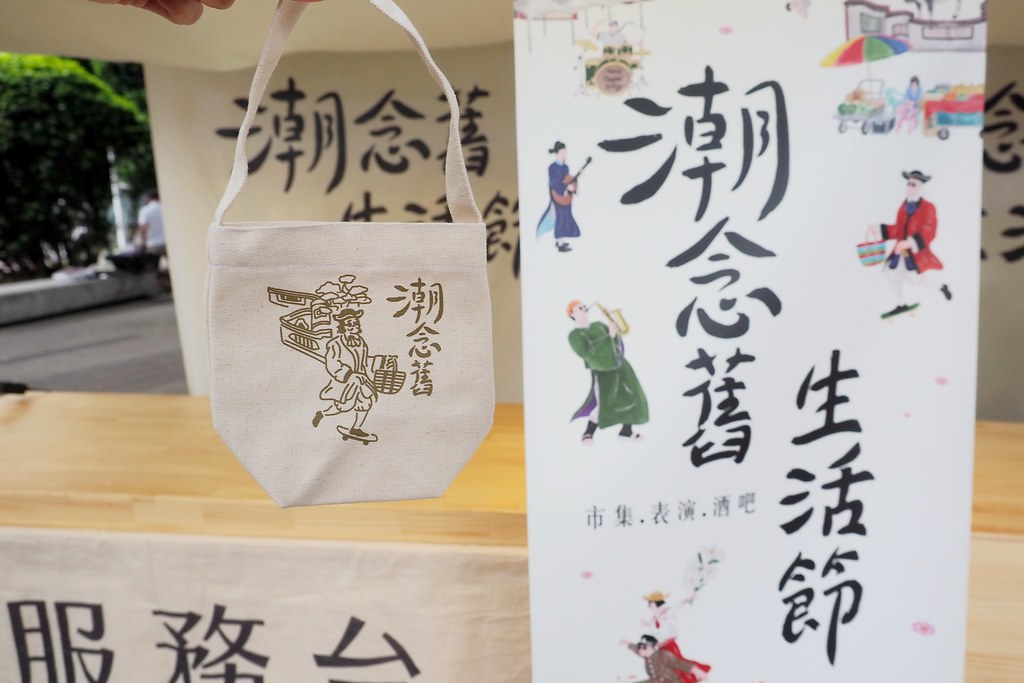 潮念舊
生活節
潮
念
舊
潮念舊
生活節
市集.表演.酒吧
服務台
念
活